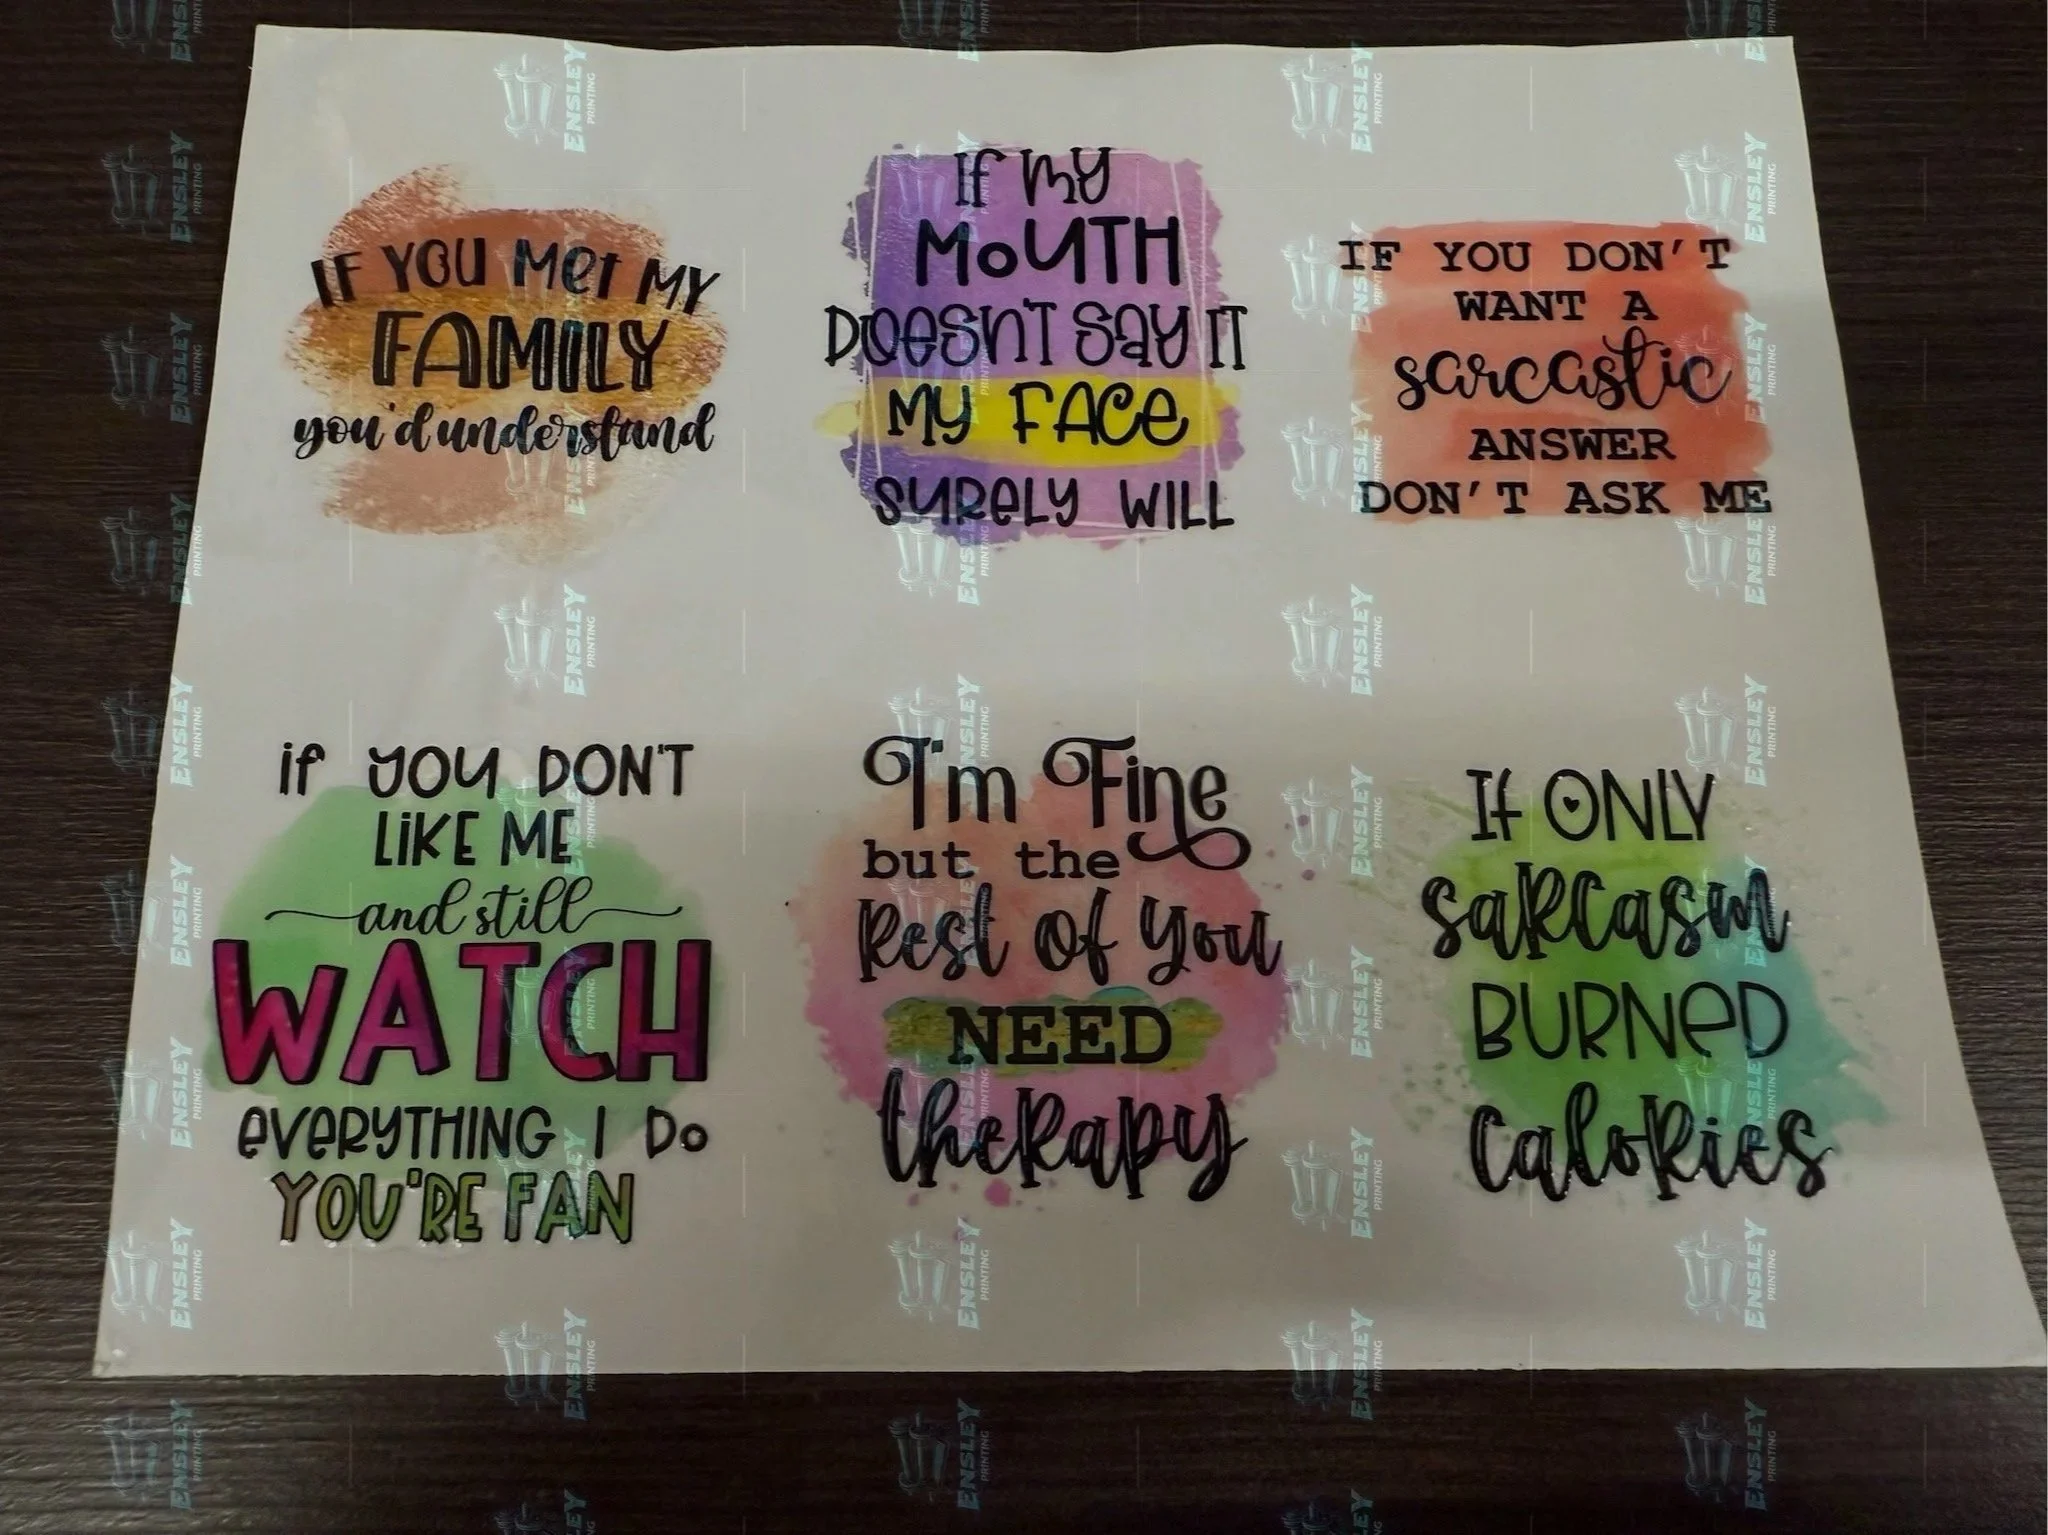 IF YOU Met MY
FAMILY
you'd understand
If my
MoUTH
DOesn'T Say IT
MY FACe
SURELY WILL
IF YOU DON'T
WANT A
sarcastic
ANSWER
DON'T ASK ME
if YOU DON'T
LiKE ME
and still
WATCH
eveRYTHING I Do
YOU'RE FAN
I'm Fine
but the
Rest Of You
NEED
theRapy
If ONLY
saRcasm
BURNeD
caloRies
ENSLEY
PRINTING